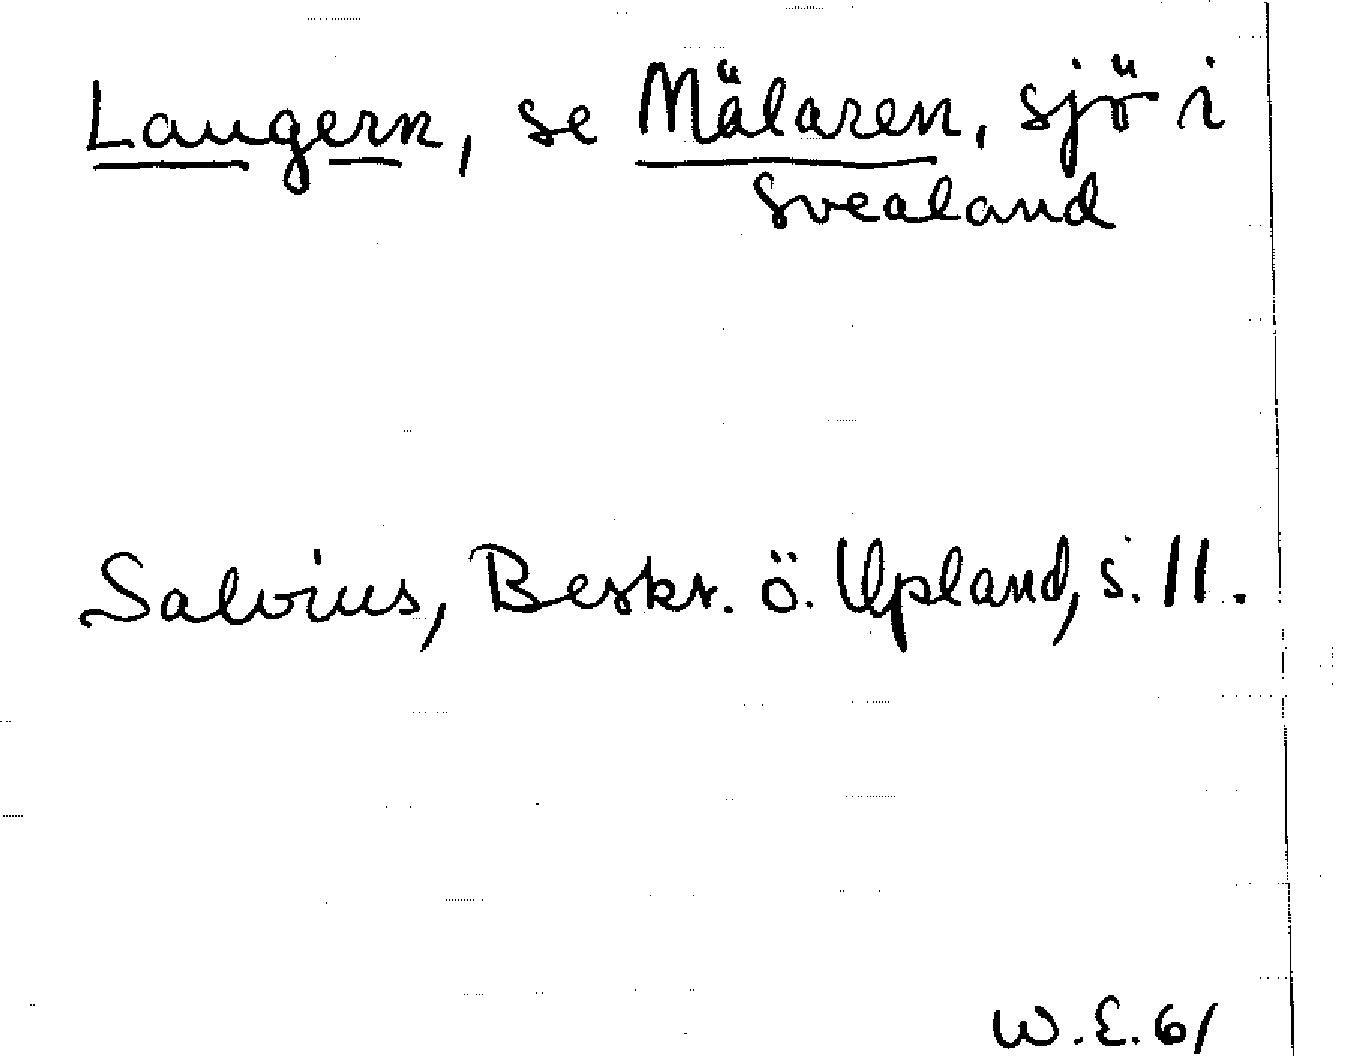 Laugern, se Mälaren, sjö i
Svealand
Salvius, Beskr. ö. Upland, s. 11.
W.E. 61